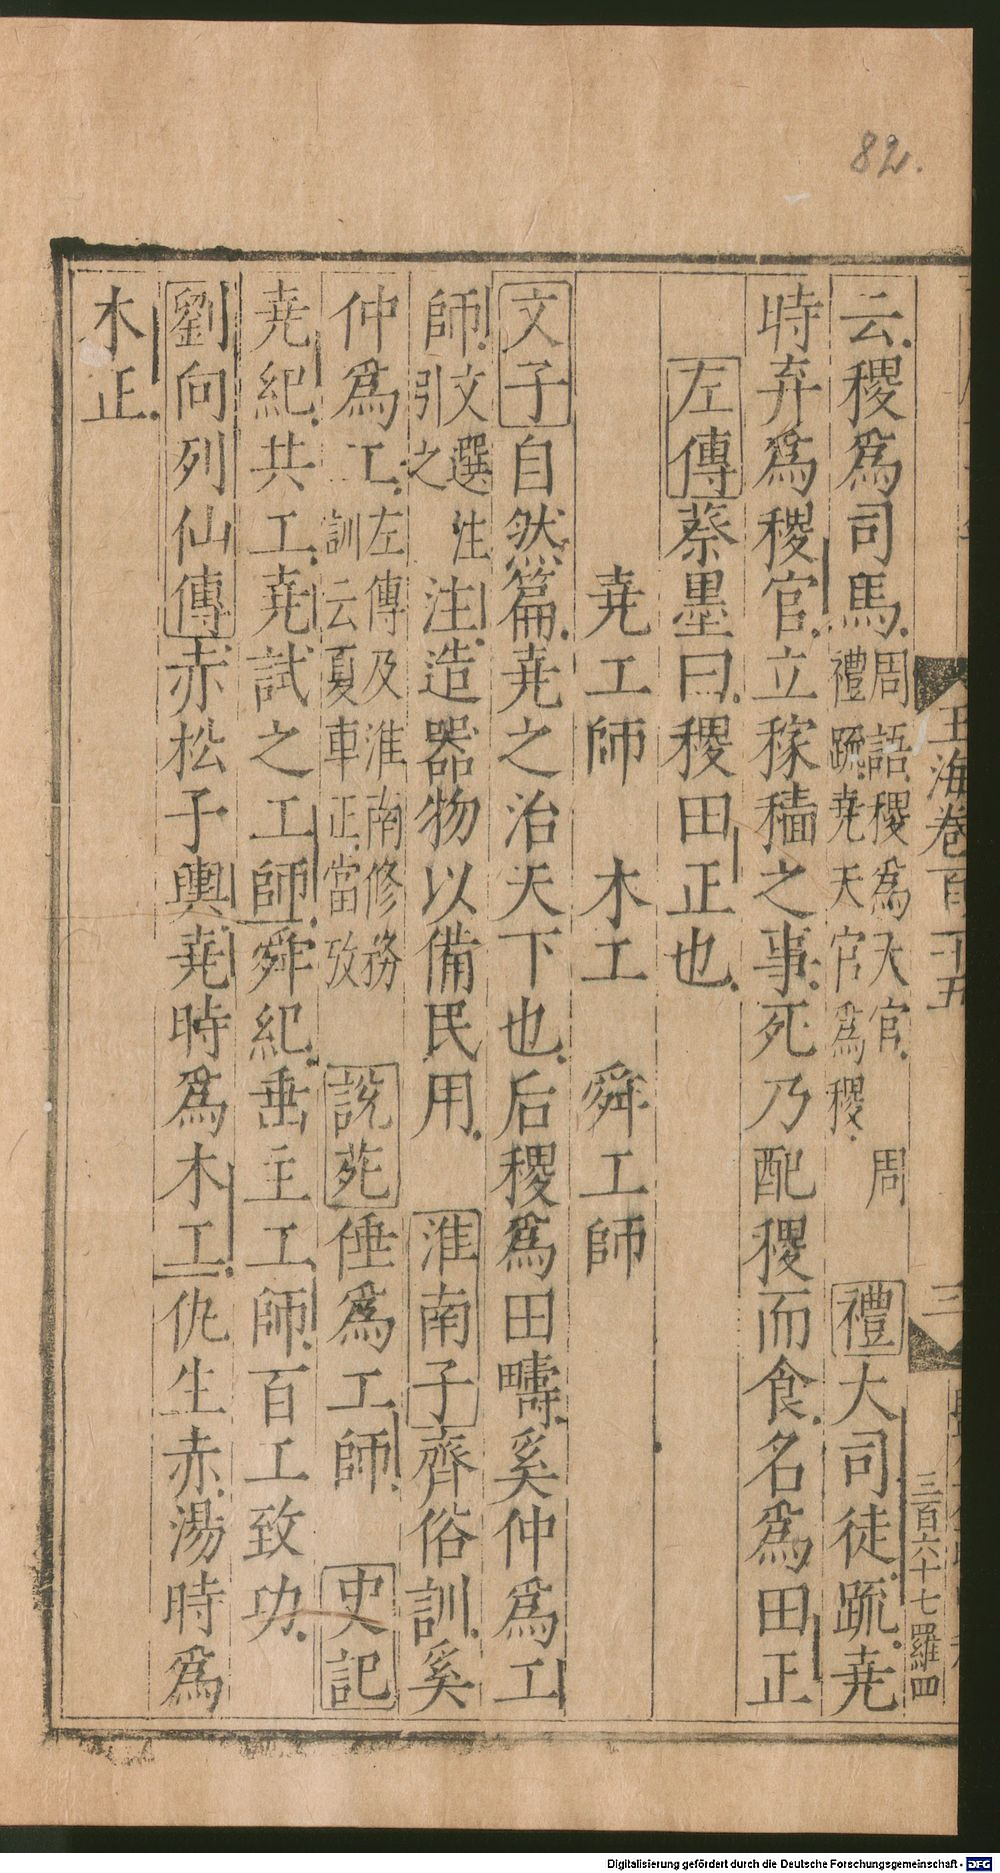 82.
云稷爲司馬周語稷爲天官周禮疏堯天官爲稷禮大司徒疏堯
時弃爲稷官立稼穡之事死乃配稷而食名爲田正
左傳蔡墨曰稷田正也
堯工師 木工 舜工師
文子自然篇堯之治天下也后稷爲田疇奚仲爲工
師文選注引之注造器物以備民用 淮南子齊俗訓奚
仲爲工左傳及淮南修務訓云夏車正當攷 說苑倕爲工師 史記
堯紀共工堯試之工師舜紀垂主工師百工致功
劉向列仙傳赤松子輿堯時爲木工仇生赤湯時爲
木正
玉海卷百二十五
三
三百六十七羅四
Digitalisierung gefördert durch die Deutsche Forschungsgemeinschaft - DFG